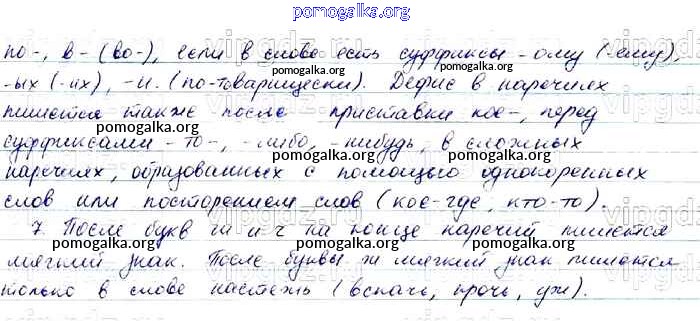 pomogalka.org
по-, в- (во-), если в слове есть суффиксы -ому (-ему),
pomogalka.org
-ых (-их), -и. (по-товарищески). Дефис в наречиях
pomogalka.org
пишется также после приставки кое-, перед
pomogalka.org
суффиксами -то-, -либо, -нибудь, в сложных
pomogalka.org
наречиях, образованных с помощью однокоренных
слов или посторением слов (кое-где, кто-то).
pomogalka.org
7. После букв ш и ч на конце наречий пишется
pomogalka.org
мягкий знак. После буквы ж мягкий знак пишется
pomogalka.org
только в слове настежь (вспачь, прочь, уж).